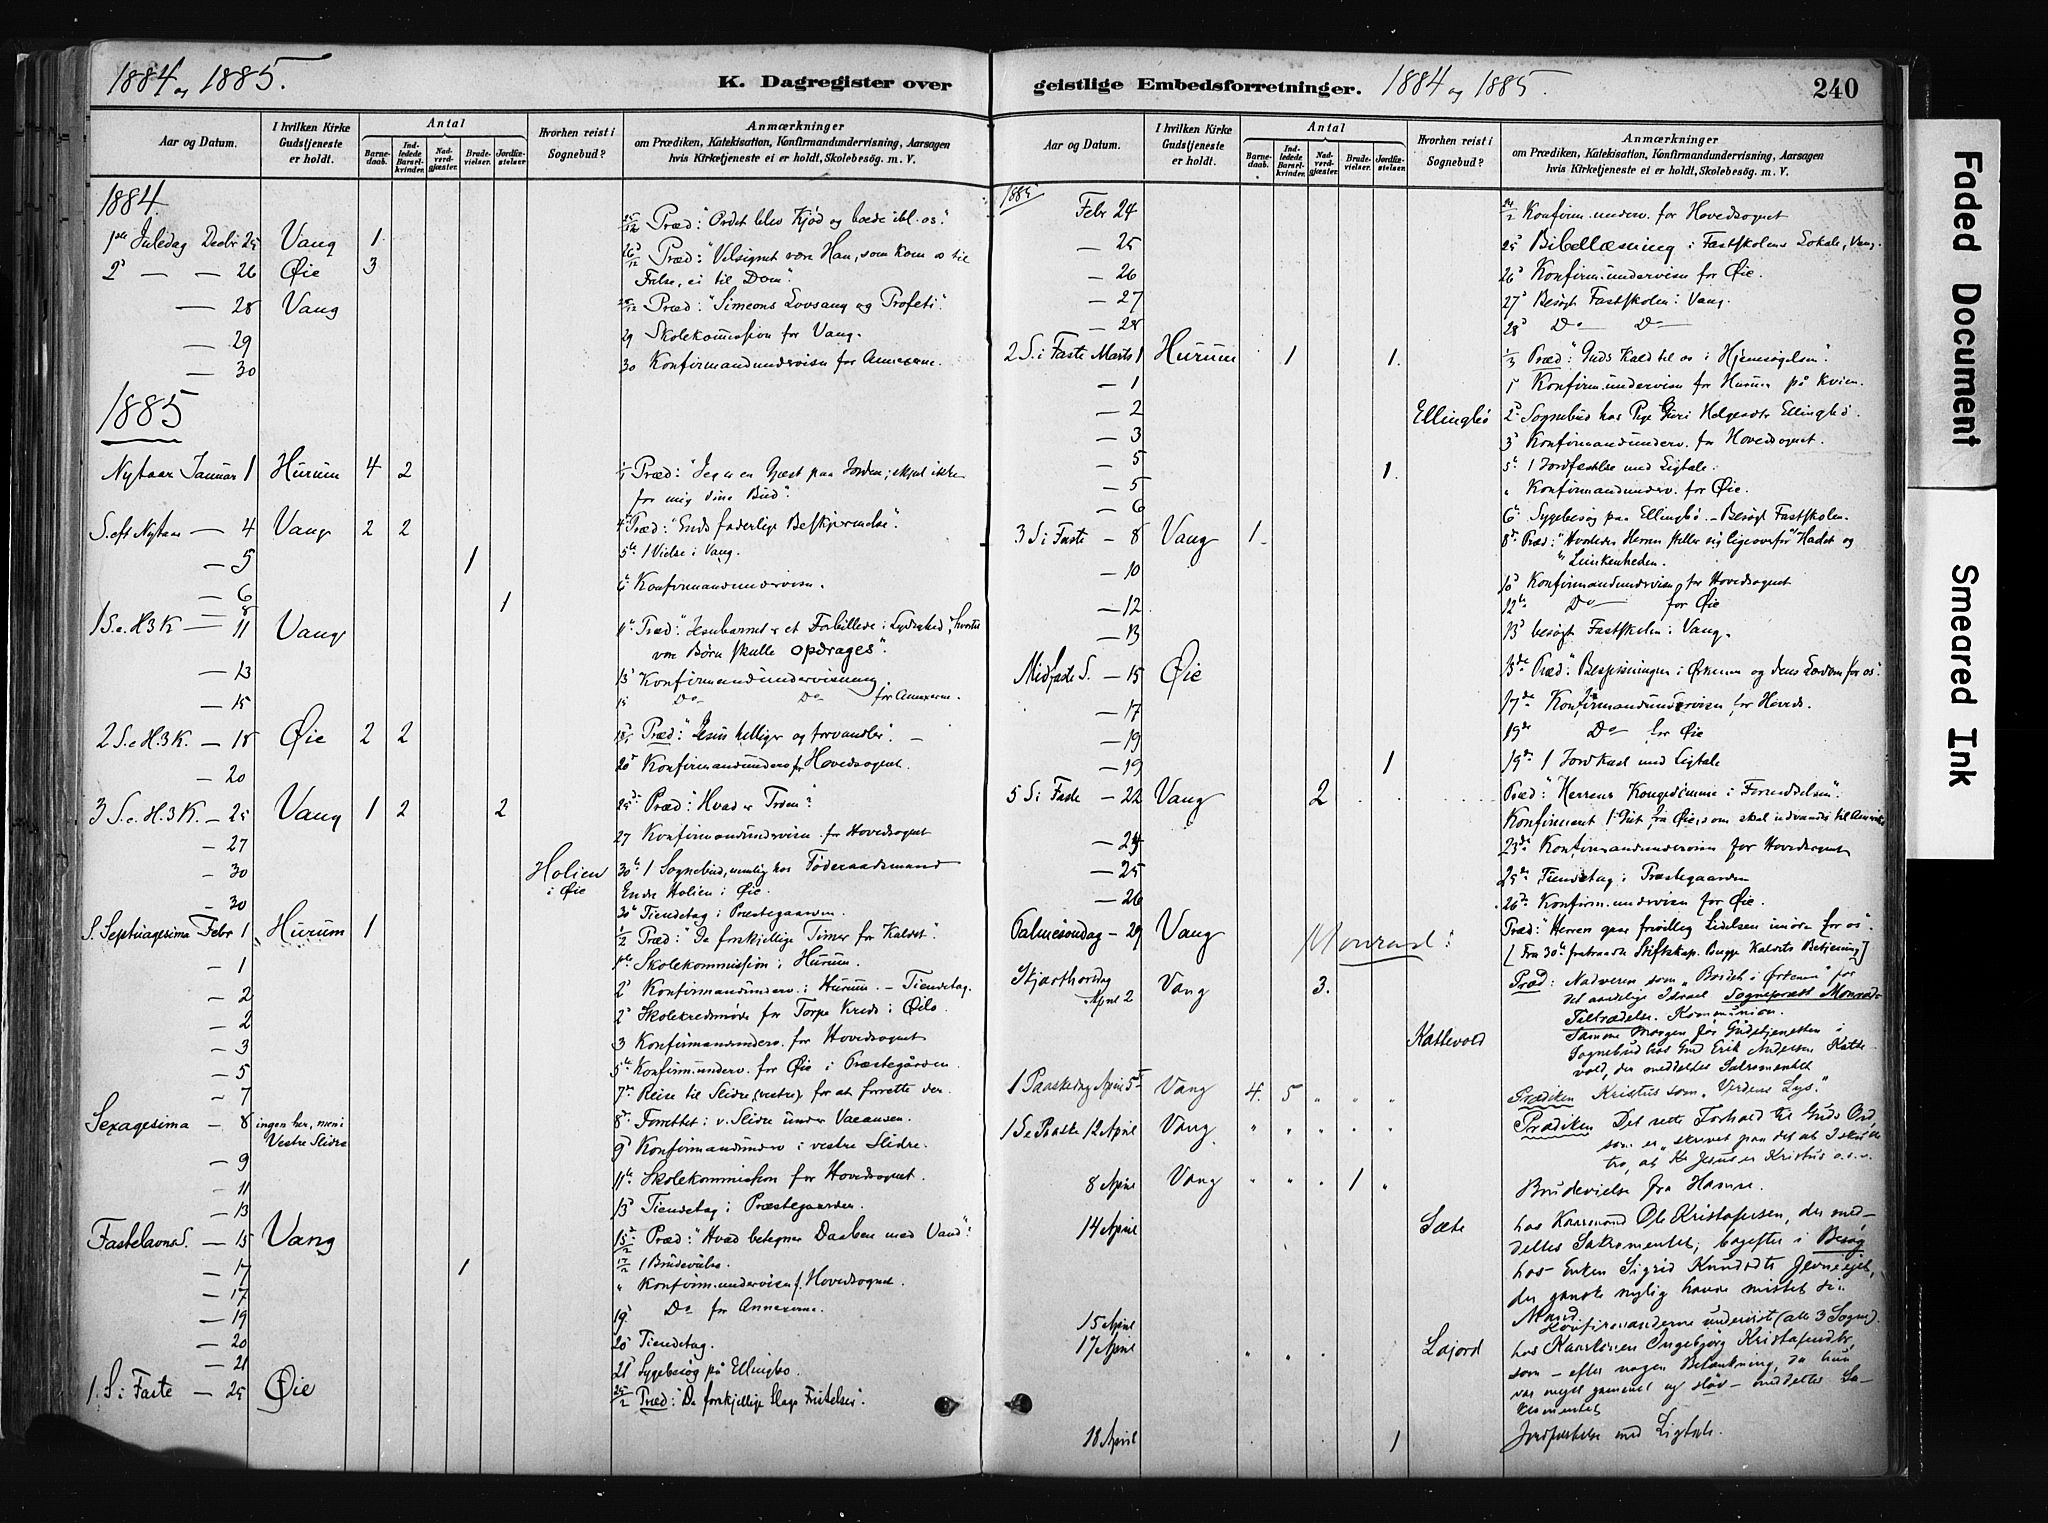 1884 og 1885.
K. Dagregister over
Aar og Datum.
I hvilken Kirke Gudstjeneste er holdt.
Antal
Barnedaab.
Indledede Barselkvinder.
Nadverdgjæster.
Brudevielser.
Jordfæstelser.
Hvorhen reist i Sognebud?
Anmærkninger
om Prædiken, Katekisation, Konfirmandundervisning, Aarsagen
hvis Kirketjeneste ei er holdt, Skolebesøg. m. V.
1884.
1ste Juledag Decbr 25 Vang 1 25/12 Præd: "Ordet blev Kjød og boede ibl. os".
2d — — 26 Øie 3 26/12 Præd: "Velsignet være Han, som kom os til
Frelse, ei til Dom".
— 28 Vang 28/12 Præd: "Simeons Lovsang og Profeti".
— 29 29 Skolekommission for Vang.
— 30 30 Konfirmandundervisn for Annexerne.
1885
Nytaar Januar 1 Hurum 4 2 1/1 Præd: "Jeg er en Gjæst paa Jorden; skjul ikke
for mig dine Bud".
S. eft Nytaar — 4 Vang 2 2 4de Præd: "Guds faderlige Beskjermelse".
— 5 1 5te 1 Vielse i Vang.
— 6 6te Konfirmandundervisn.
— 8 1
1 S. e. H3K — 11 Vang 11te Præd: "Jesubarnet et Forbillede i Lydighed, hvortil
vore Børn skulle opdrages".
— 13 13d Konfirmandundervisning.
— 15 15 Do Do for Annexerne.
2 S. e. H.3K. — 18 Øie 2 2 18/1 Præd: "Jesus helliger og forvandler".
— 20 20d Konfirmandunderv f. Hovedsognet.
3 S. e. H.3K. — 25 Vang 1 2 2 25d Præd: "Hvad er Troen"?
— 27 27 Konfirmandundervisn. for Hovedsognet
— 30 Holien i Øie 30te 1 Sognebud, nemlig hos Føderaadsmand
Endre Holien i Øie.
— 30 30te Tiendetag i Præstegaarden.
S. Septuagesima Febr 1 Hurum 1 1/2 Præd: "De forskjellige Timer for Kaldet".
— 1 1ste Skolekommission i Hurum.
— 2 2d Konfirmandunderv. i Hurum. — Tiendetag.
— 2 2d Skolekredsmøde for Torpe Kreds i Øilo.
— 3 3 Konfirmandunderv. for Hovedsognet
— 5 5te Konfirm.underv. for Øie i Præstegården.
— 7 7de Reise til Slidre (vestre) for at forrette der.
Sexagesima — 8 ingen her, men i Vestre Slidre 8de Forrettet i v. Slidre under Vacansen.
— 9 9d Konfirmandunderv i vestre Slidre.
— 11 11te Skolekommission for Hovedsognet.
— 13 13d Tiendetag i Præstegaarden.
Fastelavns S. — 15 Vang 15/2 Præd: "Hvad betegner Daaben med Vand".
— 17 1 17/2 1 Brudevielse.
— 17 " Konfirm.undervisn f. Hovedsognet.
— 19 19d Do for Annexerne.
— 20 20d Tiendetag.
— 21 21d Sygebesøg på Ellingbo.
1. S. i Faste — 25 Øie 25/2 Præd: "De forskjellige Slags Fristelser".
geistlige Embedsforretninger. 1884 og 1885.
240
Aar og Datum.
I hvilken Kirke Gudstjeneste er holdt.
Antal
Barnedaab.
Indledede Barselkvinder.
Nadverdgjæster.
Brudevielser.
Jordfæstelser.
Hvorhen reist i Sognebud?
Anmærkninger
om Prædiken, Katekisation, Konfirmandundervisning, Aarsagen
hvis Kirketjeneste ei er holdt, Skolebesøg. m. V.
1885
Febr 24 24/2 Konfirm.underv. for Hovedsognet
— 25 25d Bibellæsning i Fastskolens Lokale, Vang.
— 26 26d Konfirm.undervisn for Øie.
— 27 27d Besøgt Fastskolen i Vang.
— 28 28d Do Do
2 S. i Faste Marts 1 Hurum 1 1. 1/3 Præd: "Guds Kald til os i Hjemsøgelsen".
— 1 1 Konfirm.undervisn for Hurum på Kvien.
— 2 Ellingbö 2d Sognebud hos Pige Guri Helgesdtr Ellingbö.
— 3 3d Konfirmandunderv. for Hovedsognet.
— 5 1. 5te 1 Jordfæstelse med Ligtale.
— 5 " Konfirmandunderv. for Øie.
— 6 6te Sygebesøg paa Ellingbö. — Besøgt Fastskolen.
3 S i Faste — 8 Vang 1. 8de Præd: "Hvorledes Herren stiller sig ligeoverfor Hadet og
Lunkenheden.
— 10 10d Konfirmandundervisn for Hovedsognet
— 12 12te Do for Øie
— 13 13d besøgt Fastskolen i Vang.
Midfaste S. — 15 Øie 15de Præd: "Bespisningen i Ørkenen og dens Lærdom for os".
— 17 17de Konfirmandundervisn for Hoveds.
— 19 19de Do for Øie
— 19 1 19de 1 Jordkast med Ligtale
5 S i Faste — 22 Vang 2 Præd: "Herrens Kongedømme i Fornedrelsen".
Konfirmeret 1 Gut fra Øie, som skal udvandre til Amerika
— 24 23de Konfirmandundervisn for Hovedsognet
— 25 25de Tiendetag i Præstegaarden
— 26 26de Konfirm.undervisn for Øie.
Palmesöndag — 29 Vang Præd: "Herren gaar frivillig Lidelsen imøde for os".
Monrad: [Fra 30te fratraadte Stiftskap. Bugge Kaldets Betjening]
Skjærthorsdag April 2 Vang 3. Præd: Nadveren som "Bordet i Ørkenen" for
det aandelige Israel Sognepræst Monrads
Tiltrædelse. Kommunion.
Kattevold Samme Morgen før Gudstjenesten i
Sognebud hos Gmd Erik Andersen Katte-
vold, der meddeltes Sakramentet
1 Paaskedag April 5 Vang 4. 5 " " " Prædiken Kristus som "Verdens Lys".
1 S e Paaske 12 April Vang " " " " " Prædiken Det rette Forhold til Guds Ord,
som er "skrevet paa det at I skulde
tro, at Jesus er Kristus o.s.v.
8 April Vang " " " 1 " Brudevielse fra Hamre.
14 April Sæte hos Kaarmand Ole Kristofersen, der med-
deltes Sakramentet; bagefter i Besøg
hos Enken Sigrid Knudsdtr
der ganske nylig havde mistet sin
Mand.
15 April Konfirmanderne undervist (alle 3 Sogne).
17 April " " " Lajord hos Kaarkonen Ingebjørg Kristofersdtr,
som — efter nogen Betænkning, da hun
var meget gammel og sløv — meddeltes Sa-
kramentet
18 April 1 Jordfæstelse med Ligtale.
Faded Document
Smeared Ink